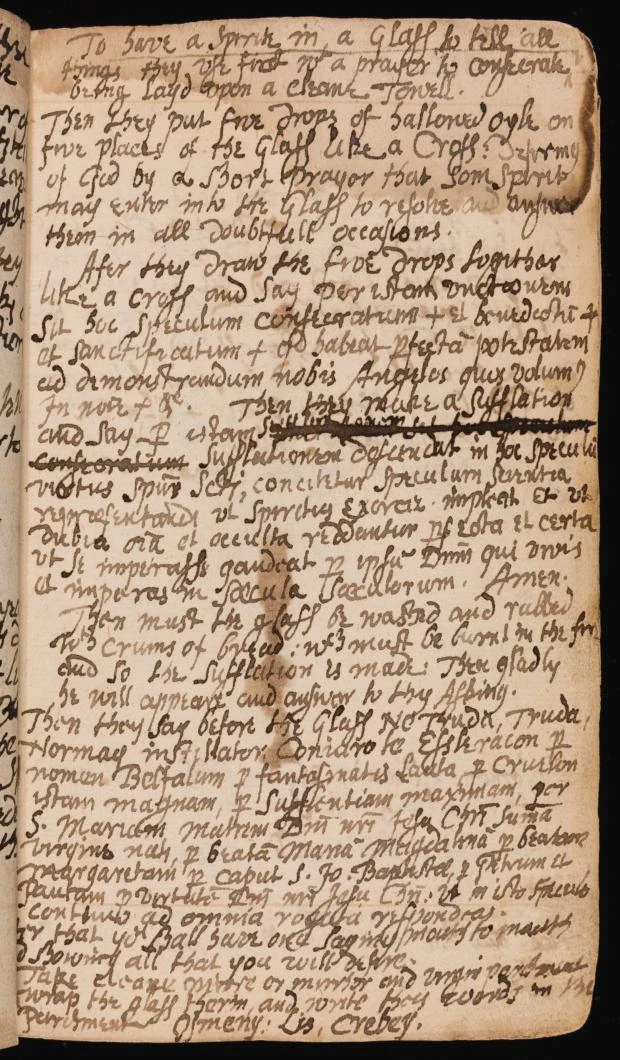 To have a Spirite in a Glass to tell all
things they use first wth a prayer to consecrate
being layd upon a cleane Towell.
Then they put five drops of hallowed oyle on
five places of the Glass like a Cross:
of God by a short prayer that som spirit
may enter into the Glass to resolve and answer
them in all doubtfull occasions.
After they draw the five drops together
like a Cross and say Per istam unctionem
sit hoc speculum consecratum + et benedictũ +
et sanctificatum + qd habeat pfectã potestatem
ad demonstrandum nobis Angelos quos volum9
In noie + &c. Then they make a sufflation
and say P istam
consecratium sufflationem descendat in hoc speculũ
virtus spũs Scti, concitetur speculum scientia
representandi ut spiritus exorciz. impleat et ut
dubia oĩa et occulta reddantur pfecta et certa
ut se imperasse gaudeat p ipsũ Dnm qui vivis
et imperas in sæcula sæculorum. Amen.
Then must the glass be washd and rubbed
wth Crums of bread: wch must be burnt in the fire
and so the sufflation is made: Then gladly
he will appeare and answer to thy Asking.
Then they say before the Glass Truda,
Normay
nomen p fantasmatis p
istam magnam, p sufflentiam maximam, per
S. Mariam matrem Dni nri Jesu Chri sumã
virginẽ p beatã Mariã Magdalenã p beatam
Margaretam p caput S. Jo Baptistæ, p Petrum et
Paulum p virtutẽ Dni nri Jesu Chri: ut in isto speculo
continuo ad omnia rogata respondeas.
that you shall have one saying mouth to mouth
showing all that you will desire.
Take cleane or mirror and virgin parchment
wrap the glass therin and write these words in the
Parchment Osmeny: Lis, Crebey.